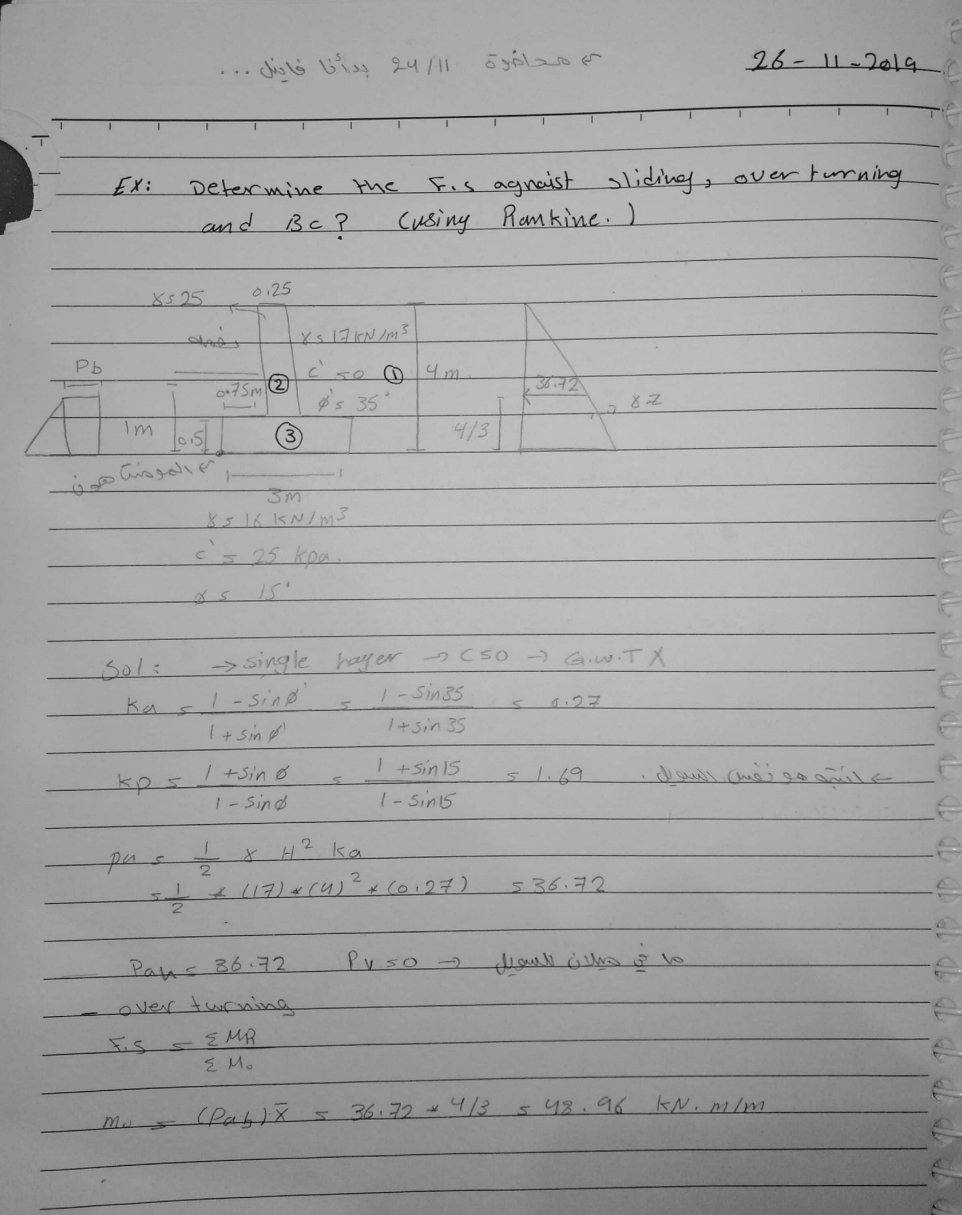 محاضرة 24/11 بدأنا فاينل ...
26-11-2019
EX: Determine the F.s agnaist sliding, over turning
and Bc? (using Rankine.)
γ = 25
0.25
γ = 17 kN/m³
Pb
0.75m
②
c' = 0 ①
4m
36.72
φ' = 35°
γz
1m
0.5
③
4/3
3m
γ = 16 kN/m³
c' = 25 kpa.
φ = 15°
Sol: → single layer → C=0 → G.W.T X
ka = 1 - sinφ' / 1 + sinφ' = 1 - sin35 / 1 + sin35 = 0.27
kp = 1 + sinφ / 1 - sinφ = 1 + sin15 / 1 - sin15 = 1.69
pa = 1/2 γ H² ka
= 1/2 * (17) * (4)² * (0.27) = 36.72
Pah = 36.72 Pv = 0 → ما في ميلان للسويل
- over turning
F.s = Σ MR / Σ Mo
mo = (Pah) x̄ = 36.72 * 4/3 = 48.96 kN.m/m